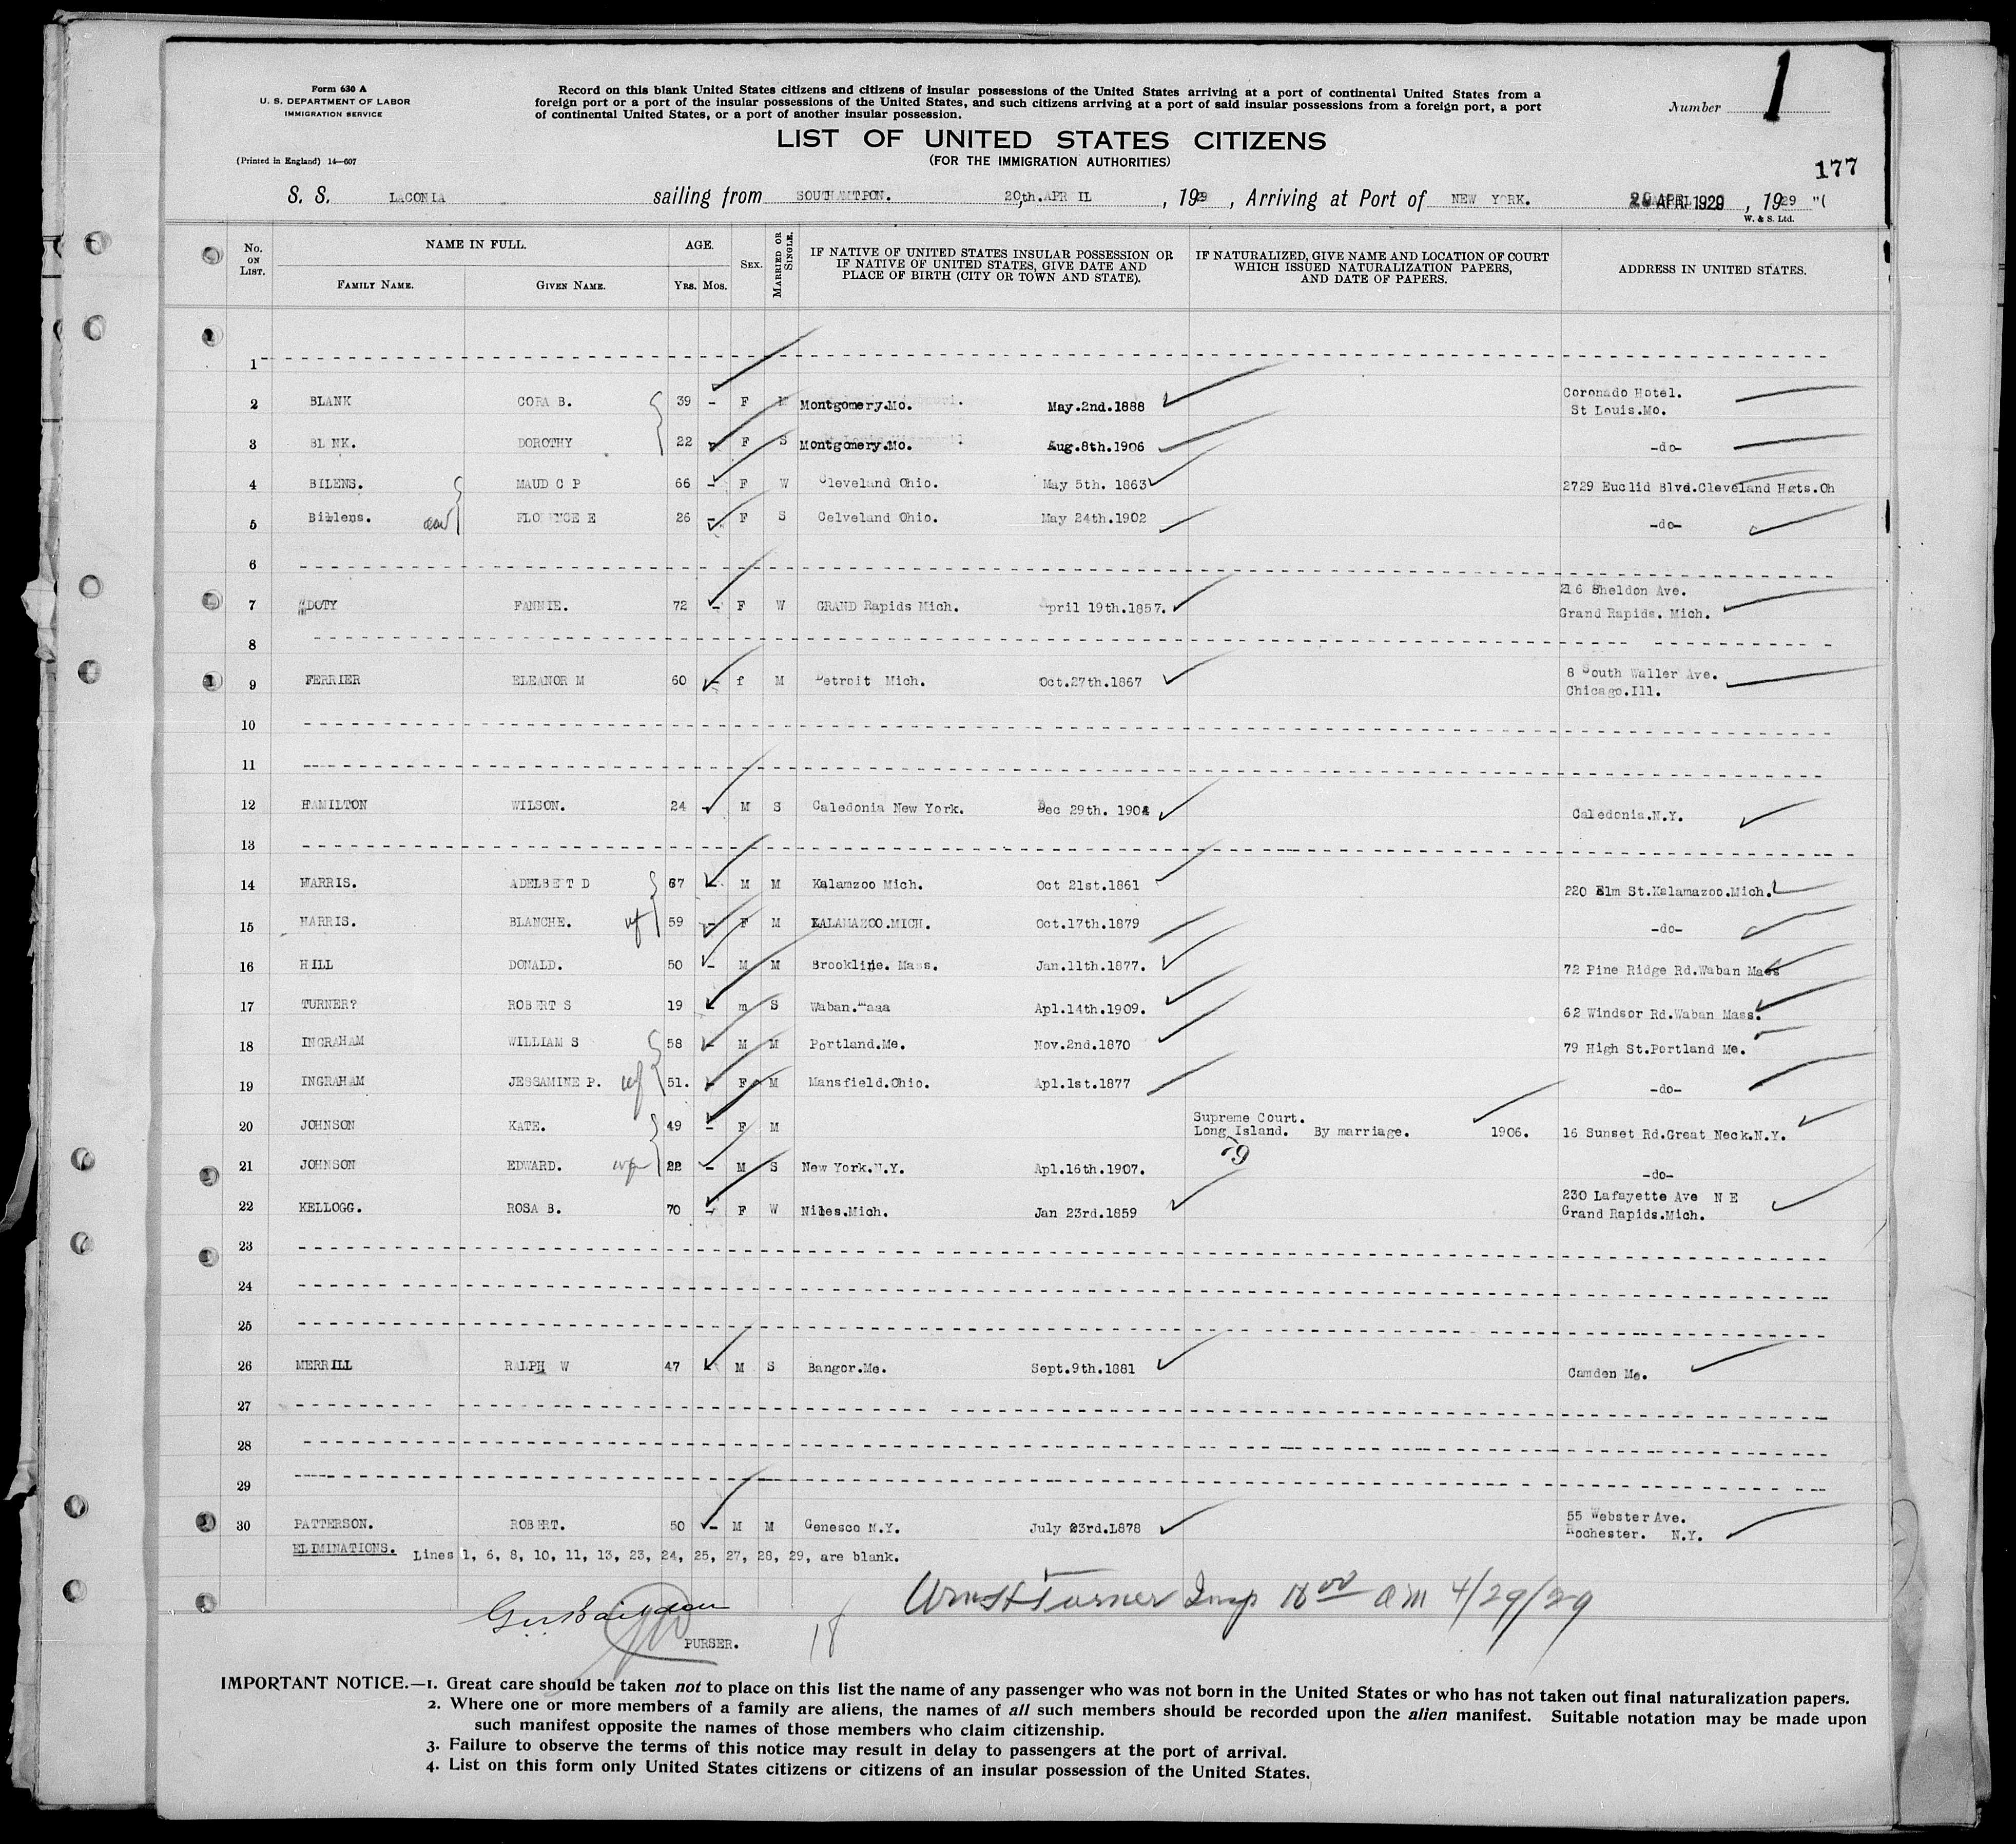 Form 630 A
U. S. DEPARTMENT OF LABOR
IMMIGRATION SERVICE
(Printed in England) 14—607
Record on this blank United States citizens and citizens of insular possessions of the United States arriving at a port of continental United States from a
foreign port or a port of the insular possessions of the United States, and such citizens arriving at a port of said insular possessions from a foreign port, a port
of continental United States, or a port of another insular possession.
Number 1
LIST OF UNITED STATES CITIZENS
(FOR THE IMMIGRATION AUTHORITIES)
177
S. S. LACONIA sailing from SOUTHAMTPON. 20th.APR IL , 1929 , Arriving at Port of NEW YORK. APR 1929 , 1929
W. & S. Ltd.
No. ON LIST. NAME IN FULL. AGE. SEX. MARRIED OR SINGLE. IF NATIVE OF UNITED STATES INSULAR POSSESSION OR IF NATIVE OF UNITED STATES, GIVE DATE AND PLACE OF BIRTH (CITY OR TOWN AND STATE). IF NATURALIZED, GIVE NAME AND LOCATION OF COURT WHICH ISSUED NATURALIZATION PAPERS, AND DATE OF PAPERS. ADDRESS IN UNITED STATES.
FAMILY NAME. GIVEN NAME. YRS. MOS.
1
2 BLANK CORA B. 39 – F M Montgomery.Mo. May.2nd.1888 Coronado Hotel. St Louis.Mo.
3 BL NK. DOROTHY 22 – F S Montgomery.Mo. Aug.8th.1906 -do-
4 BILENS. MAUD C P 66 – F W Cleveland Ohio. May 5th. 1863 2729 Euclid Blvd.Cleveland Hgts.Oh
5 Billens. FLORENCE E 26 – F S Celveland Ohio. May 24th.1902 -do-
6
7 DOTY FANNIE. 72 – F W GRAND Rapids Mich. April 19th.1857. 216 Sheldon Ave. Grand Rapids. Mich.
8
9 FERRIER ELEANOR M 60 – f M Detroit Mich. Oct.27th.1867 8 South Waller Ave. Chicago.Ill.
10
11
12 HAMILTON WILSON. 24 – M S Caledonia New York. Dec 29th. 1904 Caledonia.N.Y.
13
14 HARRIS. ADELBERT D 67 – M M Kalamzoo Mich. Oct 21st.1861 220 Elm St.Kalamazoo.Mich.
15 HARRIS. BLANCHE. wf 59 – F M KALAMAZOO.MICH. Oct.17th.1879 -do-
16 HILL DONALD. 50 – M M Brookline. Mass. Jan.11th.1877. 72 Pine Ridge Rd.Waban Mass
17 TURNER? ROBERT S 19 m S Waban.Maaa Apl.14th.1909. 62 Windsor Rd.Waban Mass.
18 INGRAHAM WILLIAM S 58 – M M Portland.Me. Nov.2nd.1870 79 High St.Portland Me.
19 INGRAHAM JESSAMINE P. wf 51. – F M Mansfield.Ohio. Apl.1st.1877 -do-
20 JOHNSON KATE. 49 – F M Supreme Court. Long Island. By marriage. 1906. 16 Sunset Rd.Great Neck.N.Y.
21 JOHNSON EDWARD. 22 – M S New York.N.Y. Apl.16th.1907. -do-
22 KELLOGG. ROSA B. 70 – F W Niles.Mich. Jan 23rd.1859 230 Lafayette Ave N E Grand Rapids.Mich.
23
24
25
26 MERRILL RALPH W 47 M S Bangor.Me. Sept.9th.1881 Camden Me.
27
28
29
30 PATTERSON. ROBERT. 50 – M M Genesco N.Y. July 23rd.L878 55 Webster Ave. Rochester. N.Y.
ELIMINATIONS. Lines 1, 6, 8, 10, 11, 13, 23, 24, 25, 27, 28, 29, are blank.
Wm H Turner Insp 10 00 am 4/29/29
PURSER. 18
IMPORTANT NOTICE.—1. Great care should be taken not to place on this list the name of any passenger who was not born in the United States or who has not taken out final naturalization papers.
2. Where one or more members of a family are aliens, the names of all such members should be recorded upon the alien manifest. Suitable notation may be made upon
such manifest opposite the names of those members who claim citizenship.
3. Failure to observe the terms of this notice may result in delay to passengers at the port of arrival.
4. List on this form only United States citizens or citizens of an insular possession of the United States.